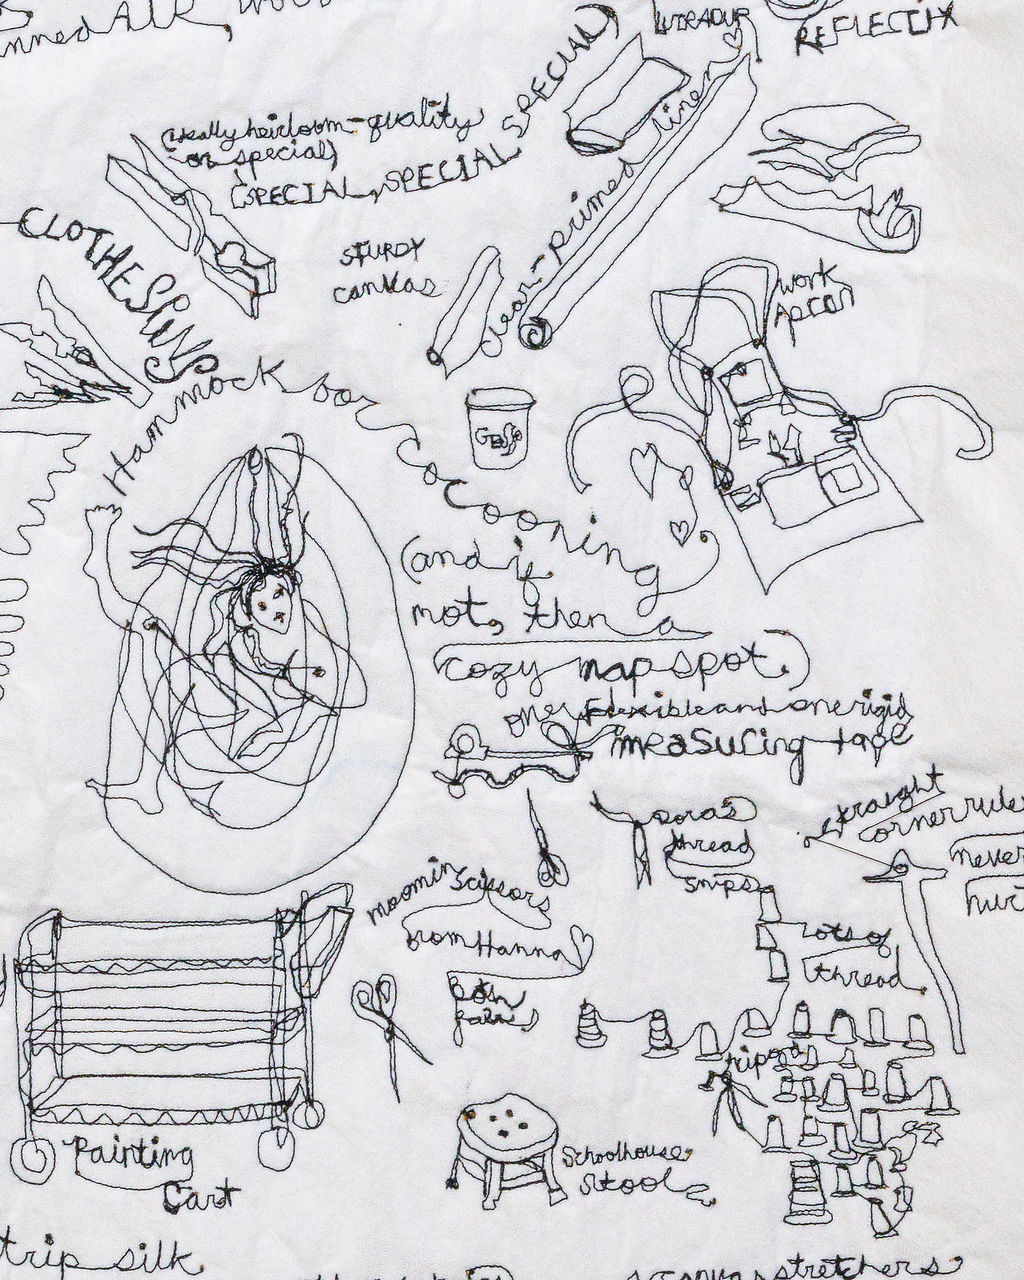 LUTRADUR
REFLECTIX
(Really heirloom-quality
on special)
(SPECIAL, SPECIAL SPECIAL)
CLOTHESPINS
STURDY
canvas
clear-primed linen
work
Apron
Gesso
Hammock for Cocooning
(and if
not, then a
cozy nap spot.)
one flexible and one rigid
measuring tape
straight
corner ruler
never
hurt
Dora's
thread
snips
moomin scissors
from Hanna
Both
pairs
Lots of
thread
tripod
Painting
Cart
Schoolhouse
Stool
trip silk
canvas stretchers